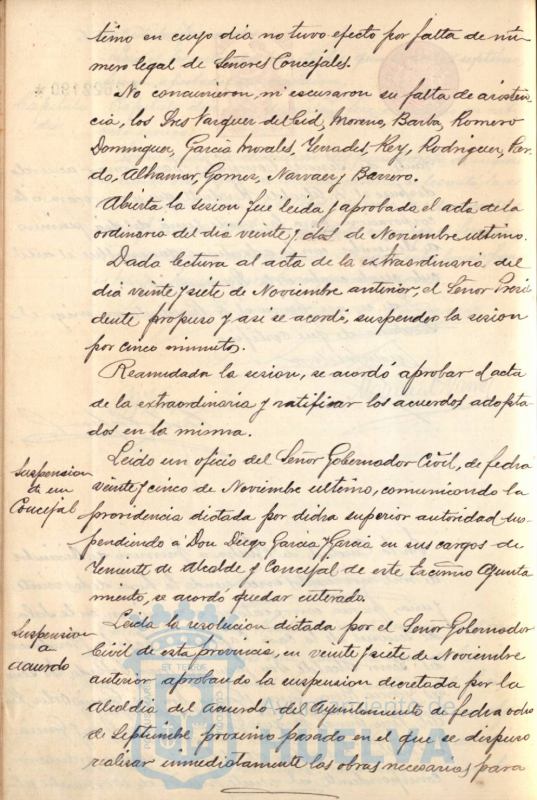 timo en cuyo dia no tuvo efecto por falta de nú
mero legal de Señores Concejales.
No concurrieron, ni escusaron su falta de asisten
cia, los Sres Vazquez del Cid, Moreno, Barba, Romero
Dominguez, Garcia Morales, Terrades, Rey, Rodriguez,
do, Alhamar, Gomez, Narvaez y Barrero.
Abierta la sesion fue leida y aprobada el acta de la
ordinaria del dia veinte y dos de Noviembre ultimo.
Dada lectura al acta de la extraordinaria del
dia veinte y siete de Noviembre anterior, el Señor Presi
dente propuso y asi se acordó, suspender la sesion
por cinco minutos.
Reanudada la sesion, se acordó aprobar el acta
de la extraordinaria y ratificar los acuerdos adopta
dos en la misma.
Suspension
de un
Concejal
Leido un oficio del Señor Gobernador Civil, de fecha
veinte y cinco de Noviembre ultimo, comunicando la
providencia dictada por dicha superior autoridad sus
pendiendo á Don Diego Garcia y Garcia en sus cargos de
Teniente de Alcalde y Concejal de este Excmo Ayunta
miento, se acordó quedar enterado.
Suspension
a
acuerdo
Leida la resolucion dictada por el Señor Gobernador
Civil de esta provincia, en veinte y siete de Noviembre
anterior aprobando la suspension decretada por la
Alcaldia del acuerdo del Ayuntamiento de fecha ocho
de Septiembre proximo pasado en el que se dispuso
realizar inmediatamente las obras necesarias para
Ayuntamiento de
HUELVA